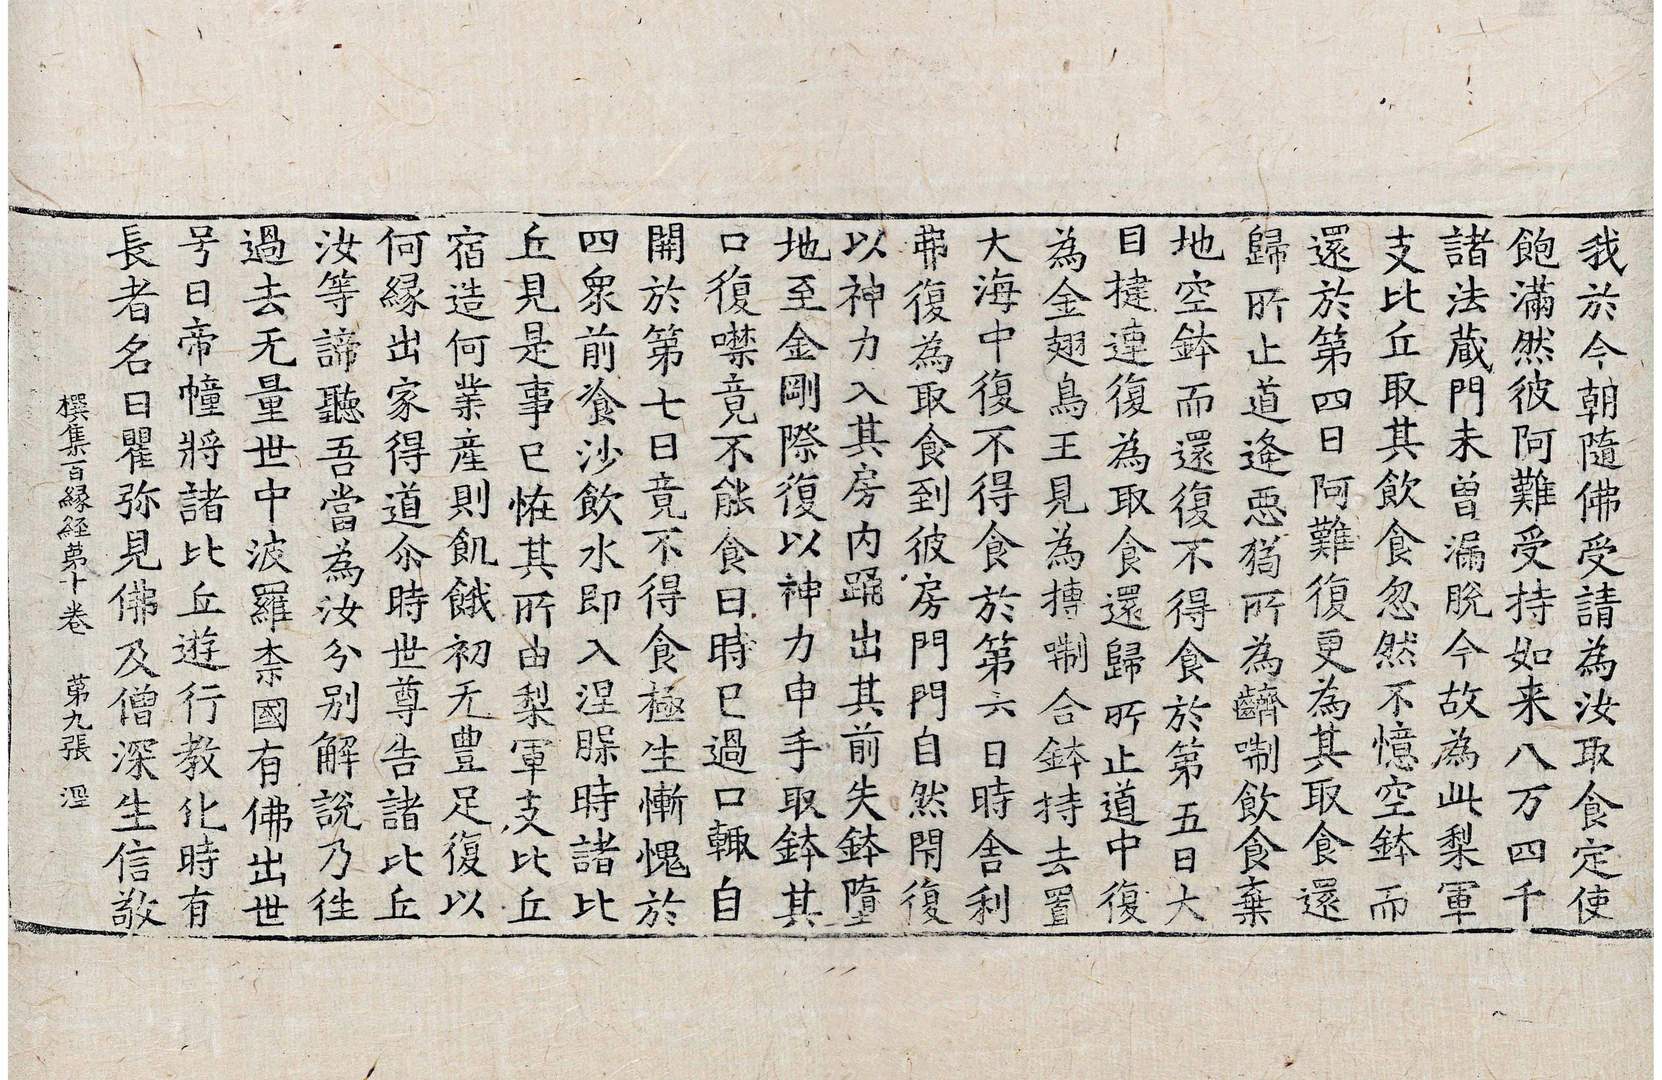 我於今朝隨佛受請為汝取食定使
飽滿然彼阿難受持如来八万四千
諸法蔵門未曽漏脫今故為此梨軍
支比丘取其飲食忽然不憶空鉢而
還於第四日阿難復更為其取食還
歸所止道逄惡狗所為齰㘅飲食棄
地空鉢而還復不得食於第五日大
目揵連復為取食還歸所止道中復
為金翅鳥王見為摶㘅合鉢持去置
大海中復不得食於第六日時舎利
弗復為取食到彼房門門自然閇復
以神力入其房内踊出其前失鉢墮
地至金剛際復以神力申手取鉢其
口復噤竟不能食日時已過口輙自
開於第七日竟不得食極生慚愧於
四衆前飡沙飲水即入涅槃時諸比
丘見是事已恠其所由梨軍支比丘
宿造何業産則飢餓初无豊足復以
何縁出家得道尒時世尊告諸比丘
汝等諦聽吾當為汝分别解說乃徃
過去无量世中波羅㮈國有佛出世
号曰帝幢將諸比丘遊行教化時有
長者名曰瞿弥見佛及僧深生信敬
撰集百縁經第十卷 第九張 湦